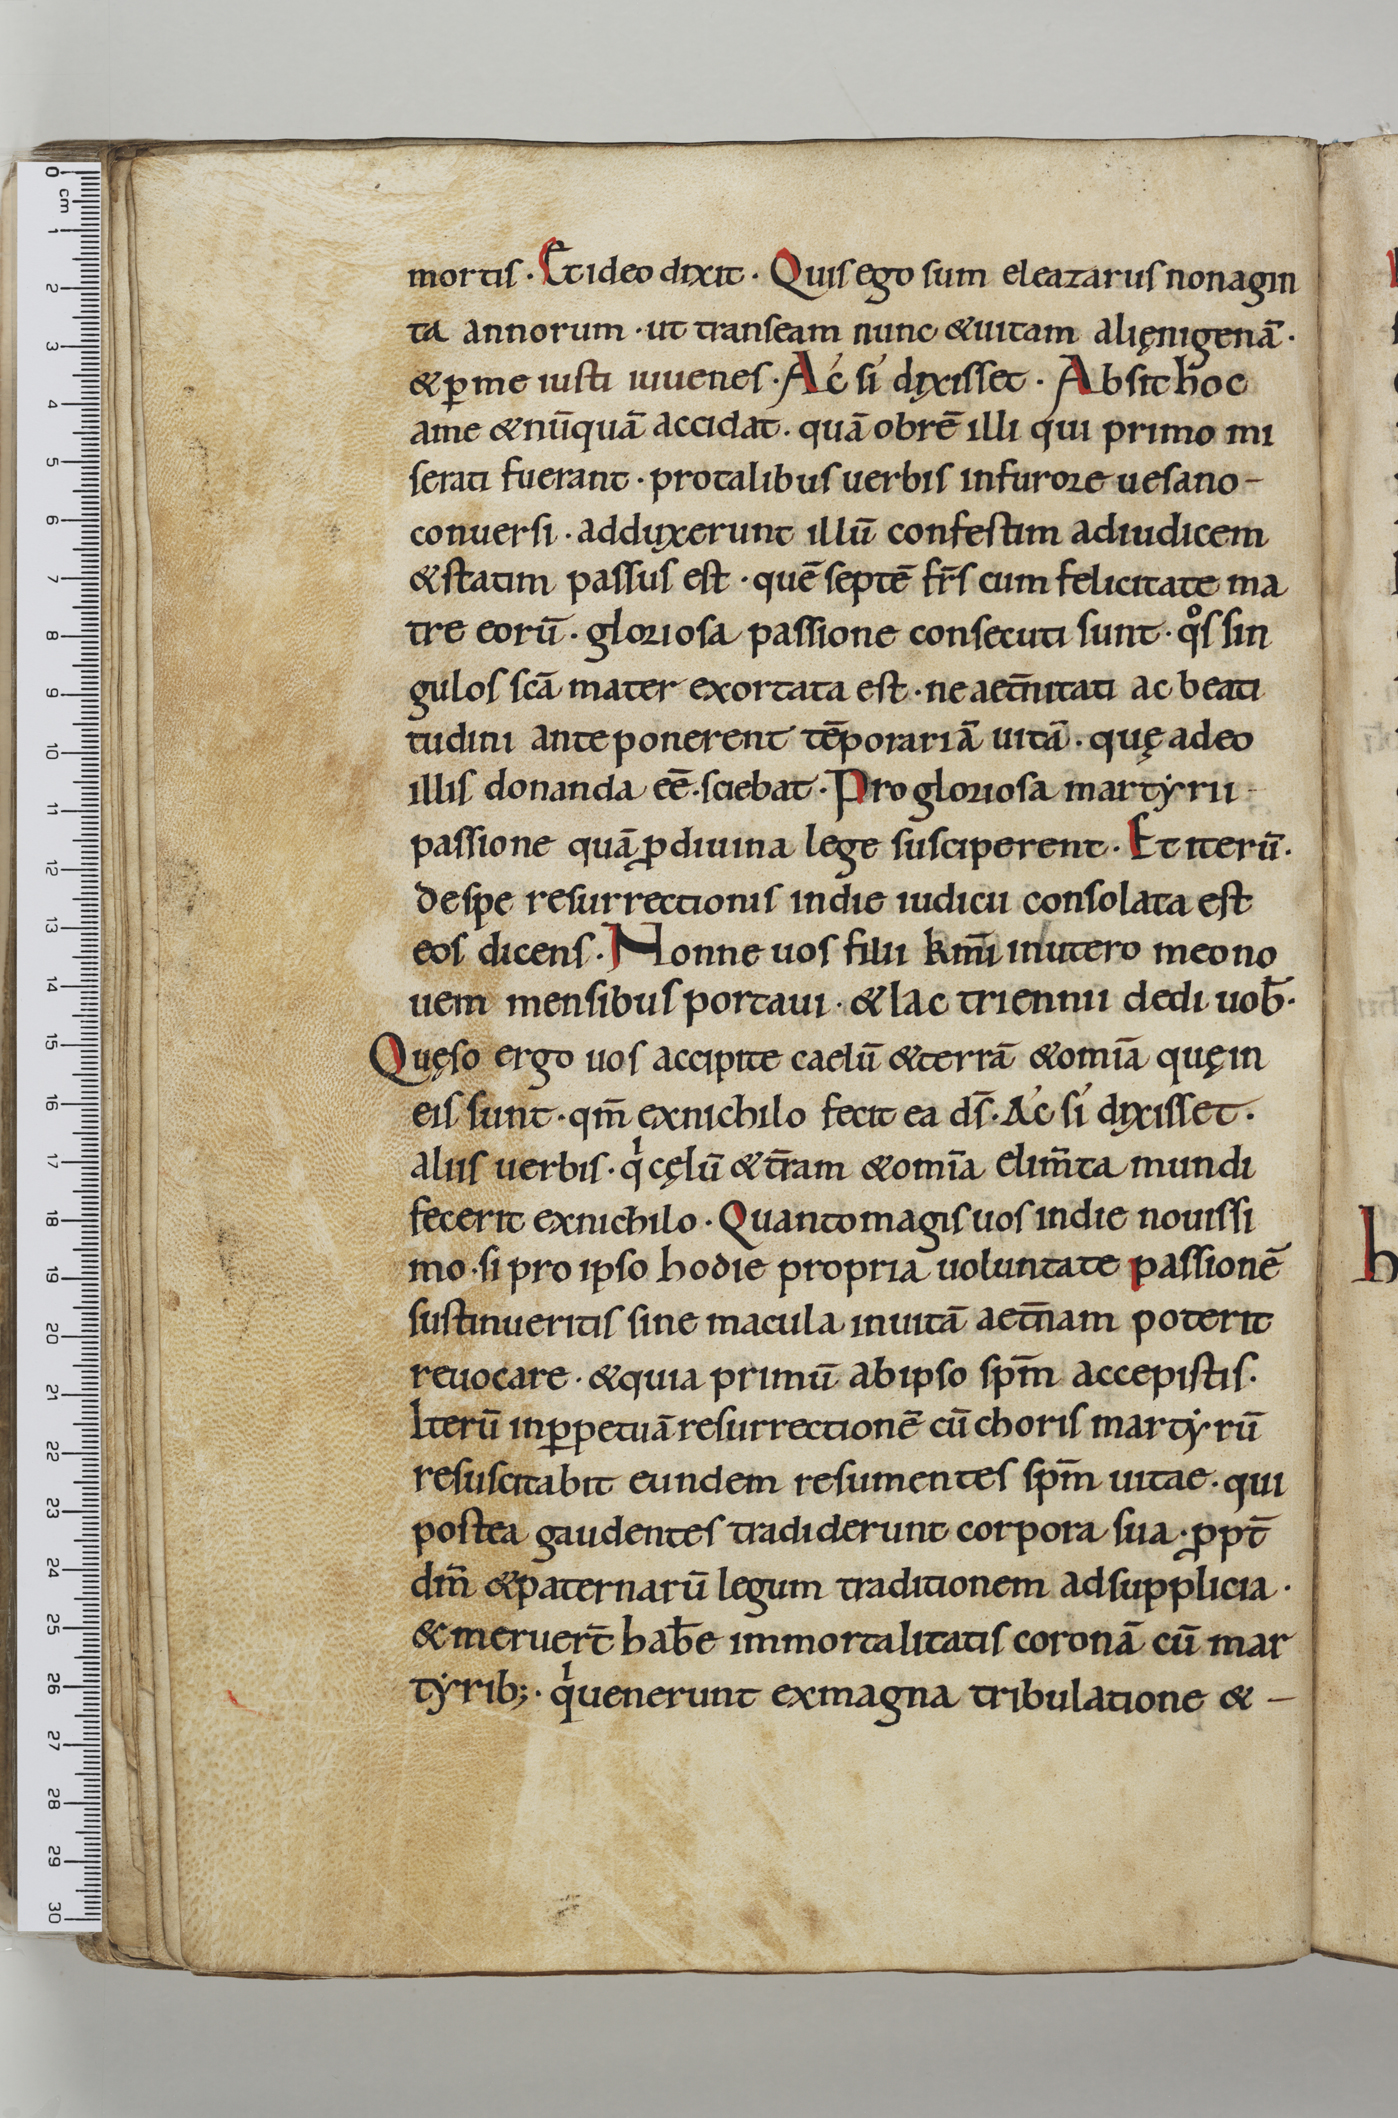 mortis · Et ideo dixit · Quis ego sum eleazarus nonagin
ta annorum · ut transeam nunc & uitam alięnigenā ·
& ꝑ me iusti iuuenes · Ac si dixisset · Absit hoc
a me & nūquā accidat · quā obrē illi qui primo mi
serati fuerant · pro talibus uerbis in furore uesano –
conuersi · adduxerunt illū confestim ad iudicem
& statim passus est · quē septē fr̄s cum felicitate ma
tre eorū · gloriosa passione consecuti sunt · qͦs sin
gulos scā mater exortata est · ne aet̄nitati ac beati
tudini anteponerent tēporariā uitā · quę a deo
illis donanda eē · sciebat · Pro gloriosa martẏrii -
passione quā ꝓ diuina lege susciperent · Et iterū ·
de spe resurrectionis in die iudicii consolata est
eos dicens · Nonne uos filii km̄i in utero meo no
uem mensibus portaui · & lac triennii dedi uob̄ ·
Quęso ergo uos accipite caelū & terrā & omīa quę in
eis sunt · qm̄ ex nichilo fecit ea ds̄ · Ac si dixisset ·
aliis uerbis · qͥ cęlū & t̄ram & omīa elim̄ta mundi
fecerit ex nichilo · Quanto magis uos in die nouissi
mo · si pro ipso hodie propria uoluntate passionē
sustinueritis sine macula in uitā aet̄nam poterit
reuocare · & quia primū ab ipso sp̄m accepistis ·
Iterū in ꝑpetuā resurrectionē cū choris martẏrū
resuscitabit eundem resumentes sp̄m uitae · qui
postea gaudentes tradiderunt corpora sua · ꝓpt̄
dm̄ & paternarū legum traditionem ad supplicia ·
& meruer̄t hab̄e immortalitatis coronā cū mar
tẏrib; · qͥ uenerunt ex magna tribulatione & –